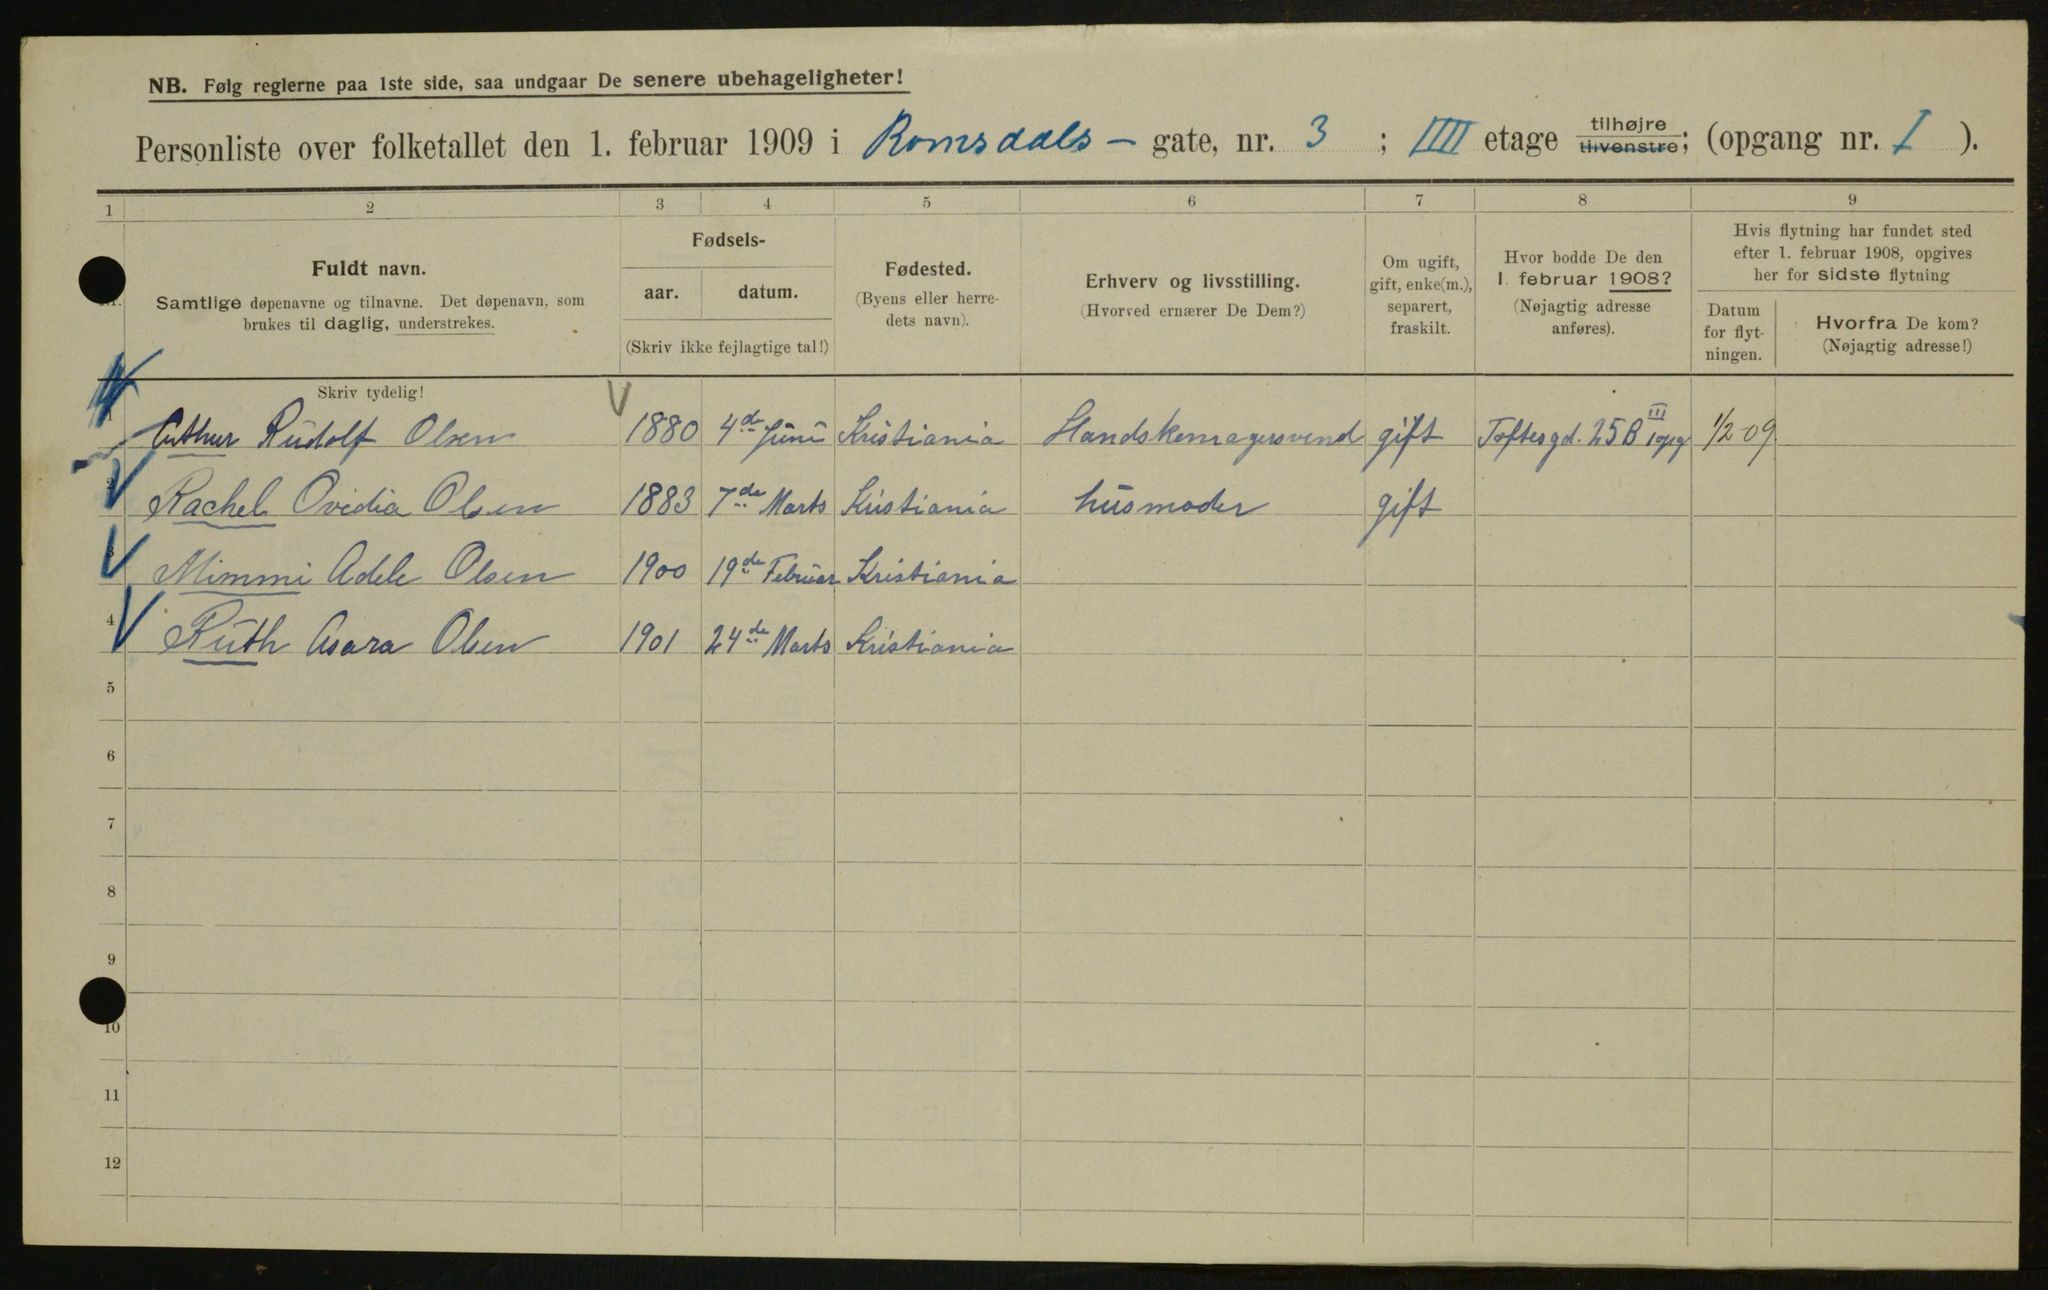 NB. Følg reglerne paa 1ste side, saa undgaar De senere ubehageligheter!
Personliste over folketallet den 1. februar 1909 i Romsdals – gate, nr. 3 ; IIII etage tilhøjre tilvenstre; (opgang nr. I ).
1 2 3 4 5 6 7 8 9
Fuldt navn.
Samtlige døpenavne og tilnavne. Det døpenavn, som
brukes til daglig, understrekes.
Fødsels-
aar. datum.
(Skriv ikke fejlagtige tal!)
Fødested.
(Byens eller herre-
dets navn).
Erhverv og livsstilling.
(Hvorved ernærer De Dem?)
Om ugift,
gift, enke(m.),
separert,
fraskilt.
Hvor bodde De den
1. februar 1908?
(Nøjagtig adresse
anføres).
Hvis flytning har fundet sted
efter 1. februar 1908, opgives
her for sidste flytning
Datum
for flyt-
ningen.
Hvorfra De kom?
(Nøjagtig adresse!)
Skriv tydelig!
1 Arthur Rudolf Olsen 1880 4de Juni Kristiania Handskemagersvend gift Toftesgd. 25 B III 1 opg 1/2 09
2 Rachel Ovidia Olsen 1883 7de Marts Kristiania husmoder gift
3 Mimmi Adele Olsen 1900 19de Februar Kristiania
4 Ruth Asara Olsen 1901 24de Marts Kristiania
5
6
7
8
9
10
11
12